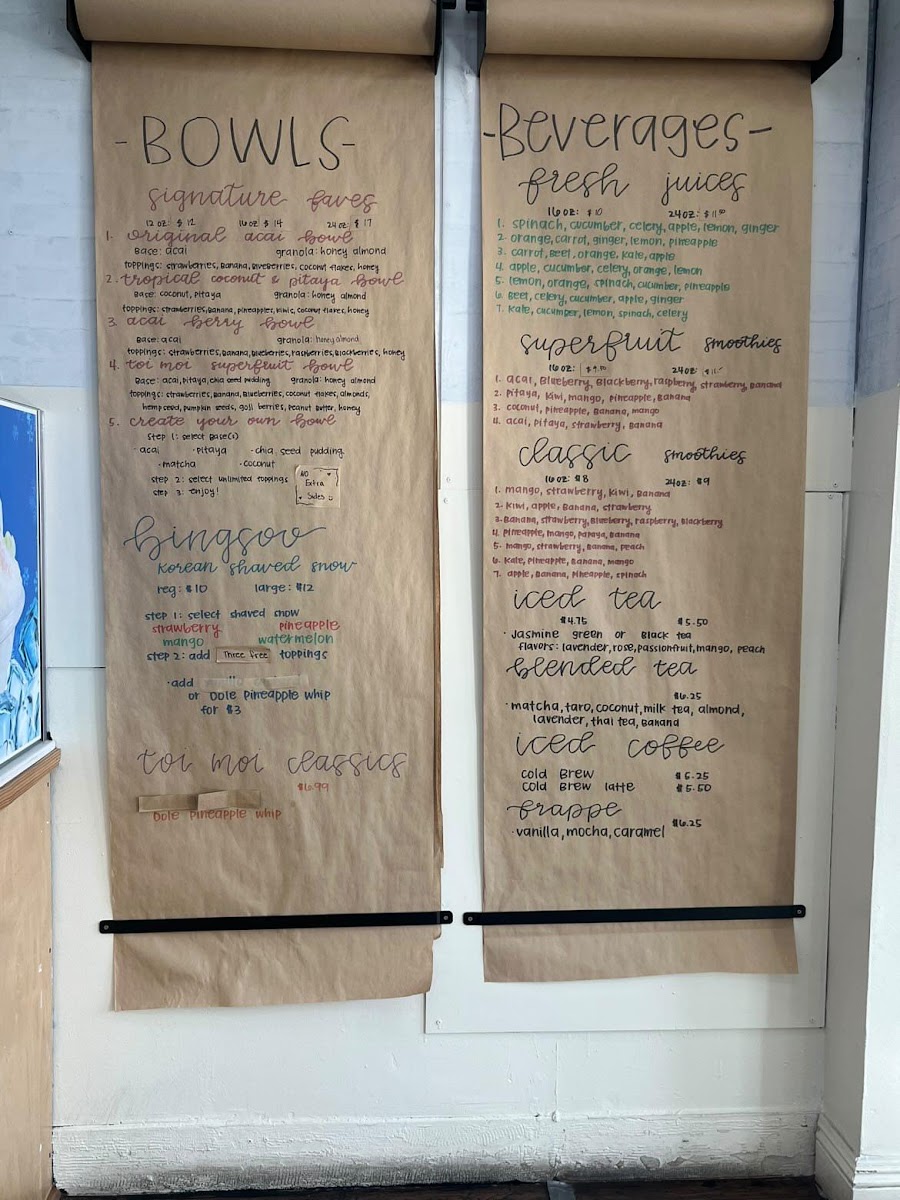 -BOWLS-
signature faves
12 oz: $12 16 oz: $14 24 oz: $17
1. original acai bowl
Base: acai granola: honey almond
toppings: strawberries, Banana, Blueberries, coconut flakes, honey
2. tropical coconut & pitaya bowl
Base: coconut, pitaya granola: honey almond
toppings: strawberries, Banana, pineapples, kiwis, coconut flakes, honey
3. acai berry bowl
Base: acai granola: honey almond
toppings: strawberries, Banana, Blueberries, raspberries, Blackberries, honey
4. toi moi superfruit bowl
Base: acai, pitaya, chia seed pudding granola: honey almond
toppings: strawberries, Banana, Blueberries, coconut flakes, almonds,
hemp seed, pumpkin seeds, goji berries, peanut Butter, honey
5. create your own bowl
step 1: select Base(s)
·acai ·pitaya ·chia seed pudding
·matcha ·coconut
step 2: select unlimited toppings
step 3: enjoy!
NO
Extra
Sides
bingsoo
korean shaved snow
reg: $10 large: $12
step 1: select shaved snow
strawberry pineapple
mango watermelon
step 2: add Three free toppings
·add
or Dole pineapple whip
for $3
toi moi classics
$6.99
Dole pineapple whip
-Beverages-
fresh juices
16 oz: $10 24 oz:
1. spinach, cucumber, celery, apple, lemon, ginger
2. orange, carrot, ginger, lemon, pineapple
3. carrot, Beet, orange, kale, apple
4. apple, cucumber, celery, orange, lemon
5. lemon, orange, spinach, cucumber, pineapple
6. Beet, celery, cucumber, apple, ginger
7. kale, cucumber, lemon, spinach, celery
superfruit smoothies
16 oz: 24 oz:
1. acai, Blueberry, Blackberry, raspberry, strawberry, Banana
2. pitaya, kiwi, mango, pineapple, Banana
3. coconut, pineapple, Banana, mango
4. acai, pitaya, strawberry, Banana
classic smoothies
16 oz: $8 24 oz: $9
1. mango, strawberry, kiwi, Banana
2. kiwi, apple, Banana, strawberry
3. Banana, strawberry, Blueberry, raspberry, Blackberry
4. pineapple, mango, papaya, Banana
5. mango, strawberry, Banana, peach
6. kale, pineapple, Banana, mango
7. apple, Banana, pineapple, spinach
iced tea
$4.75 $5.50
·Jasmine green or Black tea
flavors: lavender, rose, passionfruit, mango, peach
blended tea
$6.25
·matcha, taro, coconut, milk tea, almond,
lavender, thai tea, Banana
iced coffee
cold Brew $5.25
cold Brew latte $5.50
frappe
$6.25
·vanilla, mocha, caramel